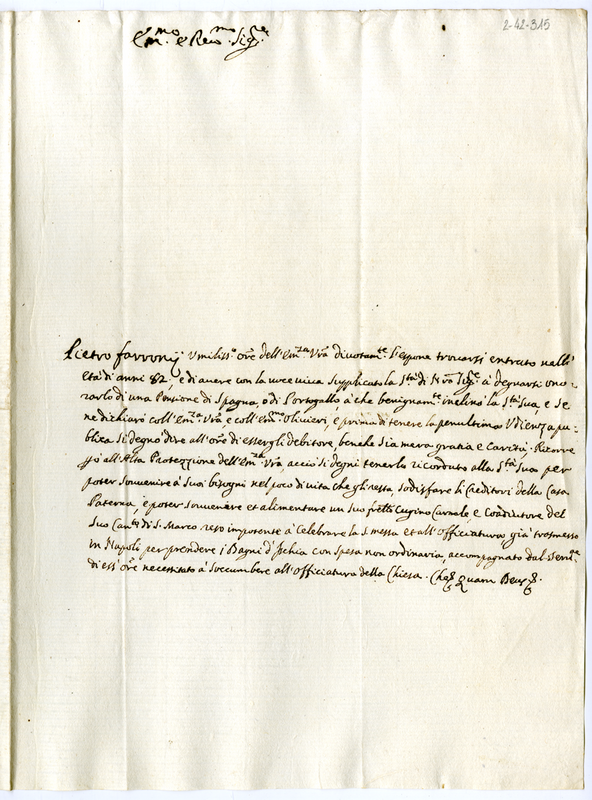 2-42-315
Em.mo e Rev.mo Sig.re
Pietro Farronij Umiliss.o ore dell'Em.za Vra divotam.te l'espone trovarsi entrato nell'
età di anni 82, e di avere con la voce viva supplicato la S.tà di Nro Sig.re à degnarsi ono-
rarlo di una Pensione di Spagna, ò di Portogallo, à che benignam.te inclinò la S.tà Sua, e se
ne dichiarò coll'Em.za Vra e coll'Em.mo Olivieri, e prima di tenere la penultima Udienza pu-
blica si degnò dire all'ore di essergli debitore, benche sia mera gratia e Carità. Ricorre
all'Alta Protezzione dell'Em.za Vra, acciò si degni tenerlo ricordato alla S.tà Sua per
poter souvenire à Suoi bisogni nel poco di vita che gli resta, sodisfare li Creditori della Casa
Paterna, e poter souvenire et alimentare un suo frãllo Cugino Carnale, e Coadiutore del
suo Can.to di S. Marco reso impotente à Celebrare la S. messa et all'Officiatura già trasmesso
in Napoli per prendere i Bagni d'Ischia con spesa non ordinaria, accompagnato dal
di ess' ore necessitato à soccumbere all'Officiatura della Chiesa. Che quam Deus